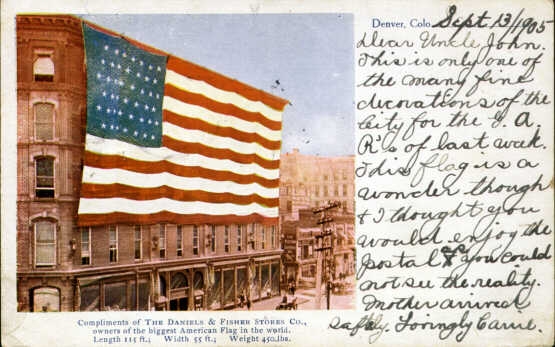 Denver, Colo. Sept. 13/1905
Dear Uncle John.
This is only one of
the many fine
decorations of the
City for the G. A.
R's of last week.
This flag is a
wonder though
& I thought you
would enjoy the
postal as you could
not see the reality.
Mother arrived
safely. Lovingly Carrie.
Compliments of THE DANIELS & FISHER STORES CO.,
owners of the biggest American Flag in the world.
Length 115 ft.; Width 55 ft.; Weight 450 lbs.